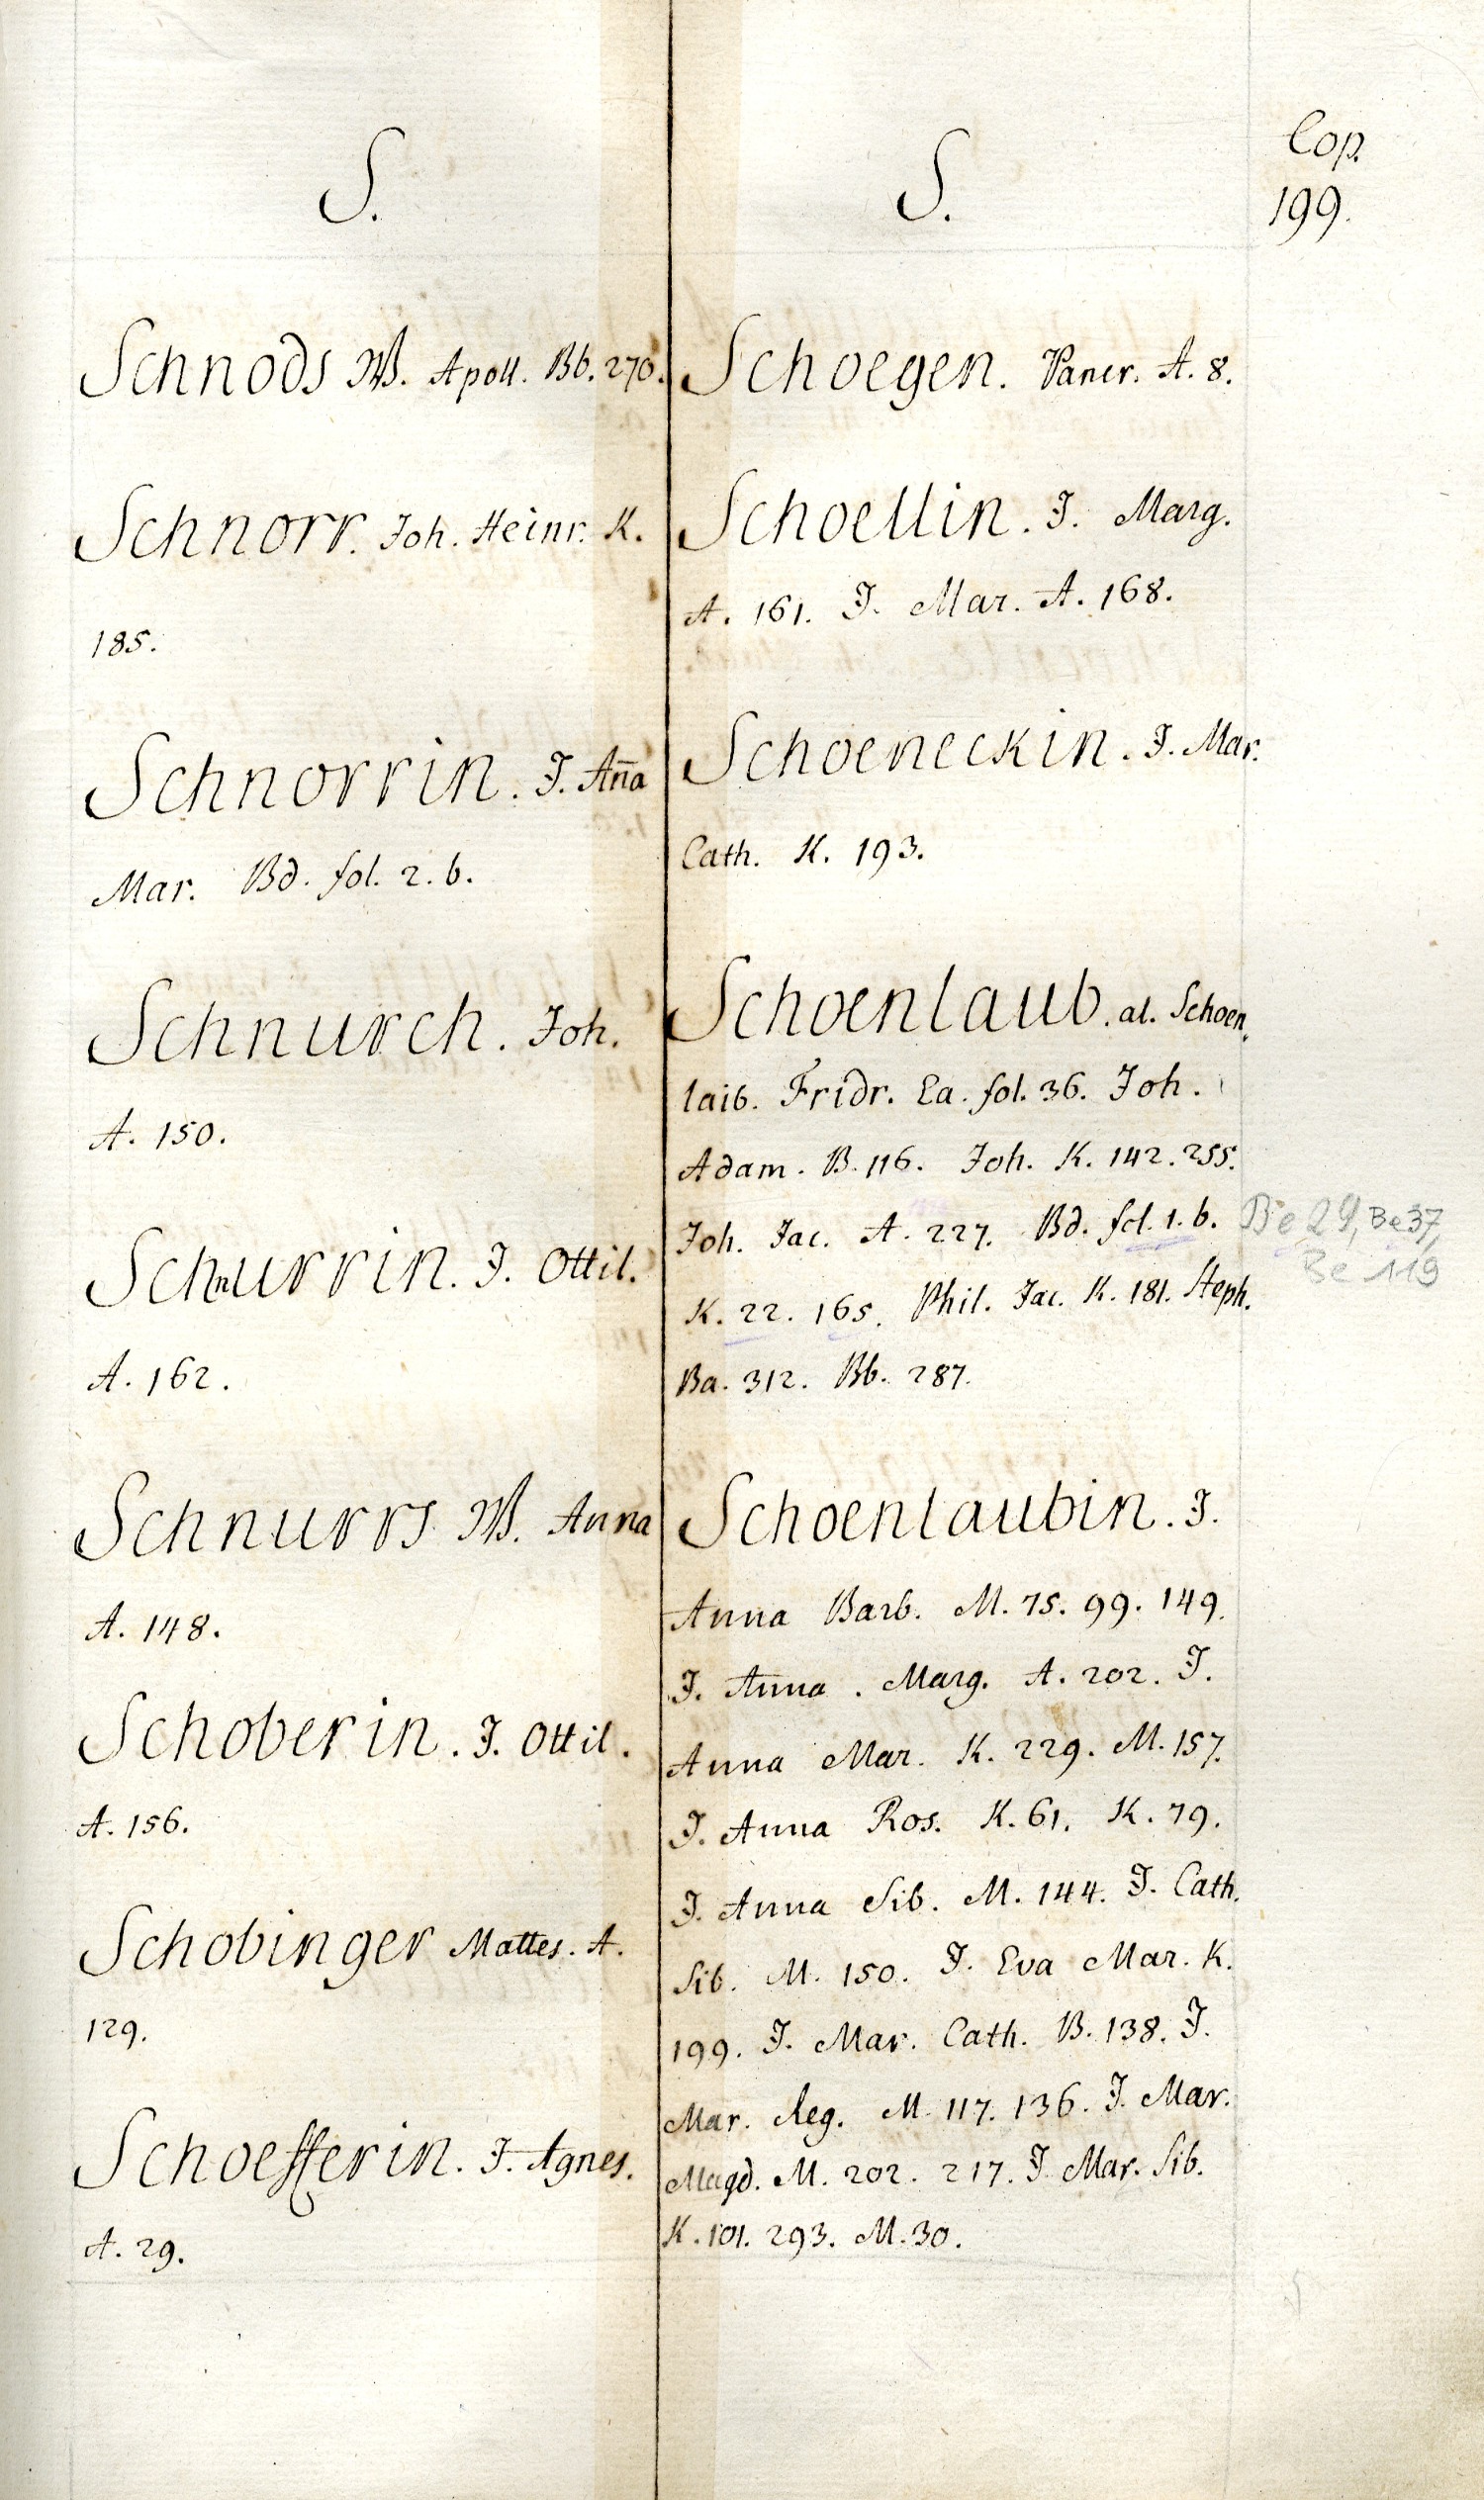 S.
Schnods W. Apoll. Bb. 270.
Schnorr. Joh. Heinr. K.
185.
Schnorrin. J. Ana̅
Mar. Bd. fol. 2. b.
Schnurch. Joh.
A. 150.
Schnurrin. J. Ottil.
A. 162.
Schnurrs W. Anna
A. 148.
Schoberin. J. Ottil.
A. 156.
Schobinger Mattes. A.
129.
Schoefferin. J. Agnes.
A. 29.
S.
Schoegen. Pancr. A. 8.
Schoellin. J. Marg.
A. 161. J. Mar. A. 168.
Schoeneckin. J. Mar.
Cath. K. 193.
Schoenlaub. al. Schoen,
laib. Fridr. Ea. fol. 36. Joh.
Adam. B. 116. Joh. K. 142. 255.
Joh. Jac. A. 227. Bd. fol. 1. b.
K. 22. 165. Phil. Jac. K. 181. Steph.
Ba. 312. Bb. 287.
Schoenlaubin. J.
Anna Barb. M. 75. 99. 149.
J. Anna. Marg. A. 202. J.
Anna Mar. K. 229. M. 157.
J. Anna Ros. K. 61. K. 79.
J. Anna Sib. M. 144. J. Cath.
Sib. M. 150. J. Eva Mar. K.
199. J. Mar. Cath. B. 138. J.
Mar. Reg. M. 117. 136. J. Mar.
Magd. M. 202. 217. J. Mar. Sib.
K. 101. 293. M. 30.
Cop.
199.
Be 29, Be 37,
Be 119